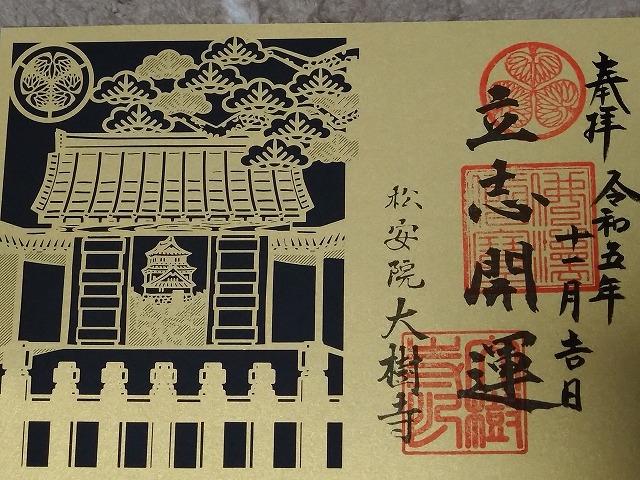 奉拝
令和五年
十一月吉日
立志開運
松安院大樹寺